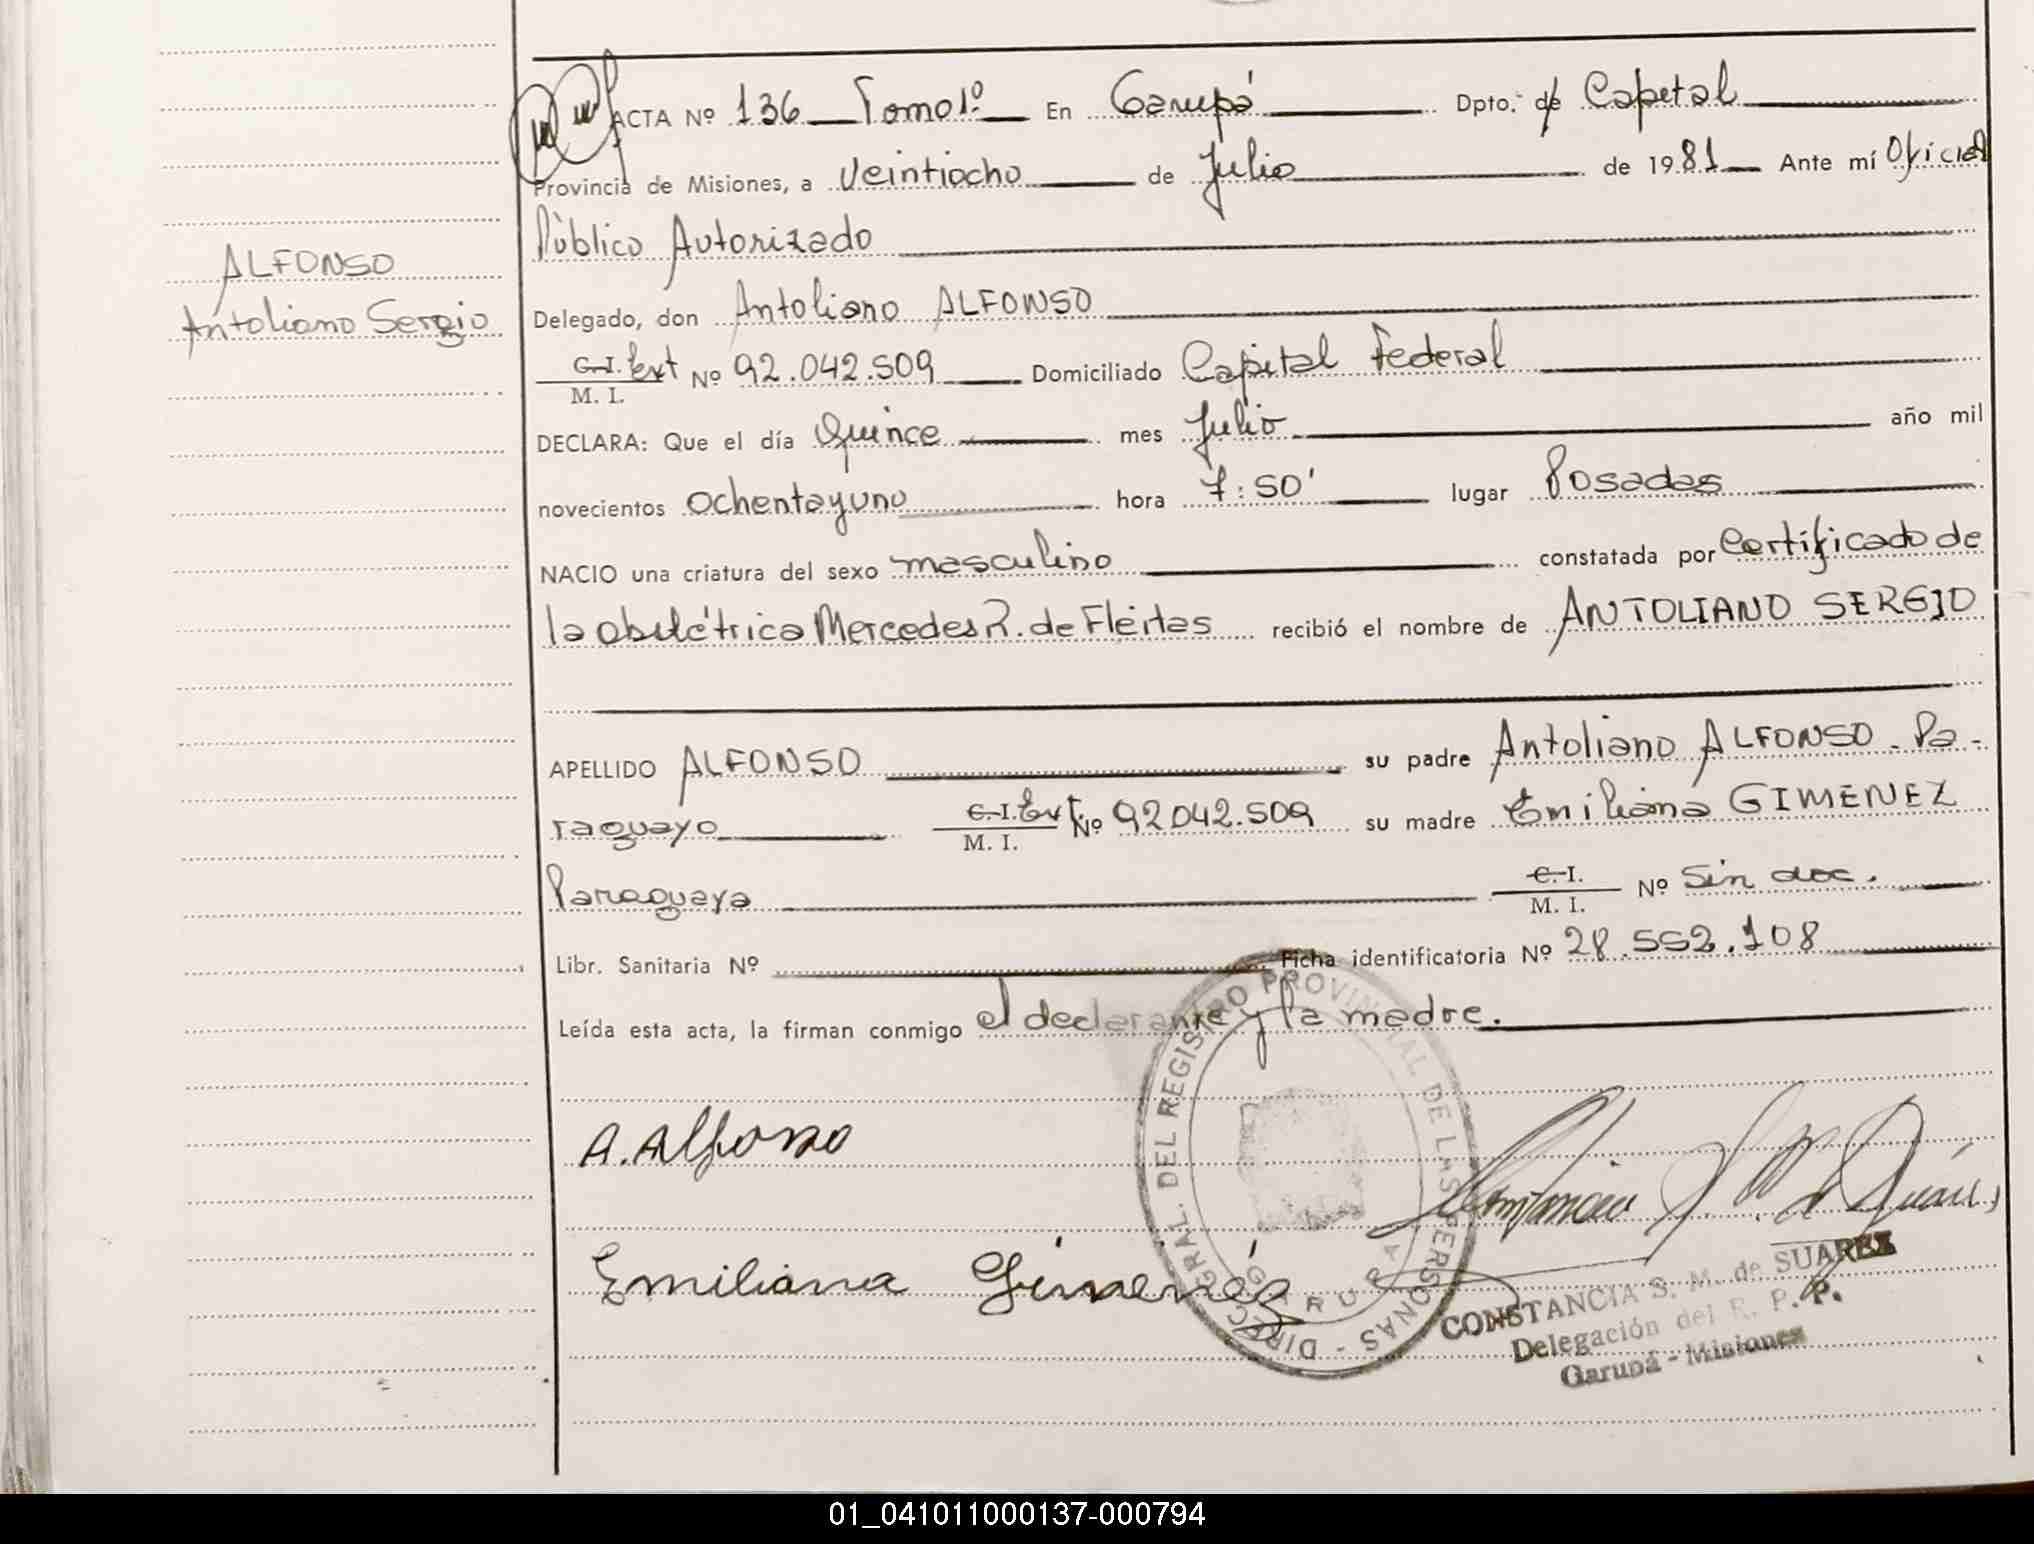 ACTA Nº 136 Tomo 1º En Garupá Dpto. de Capital
Provincia de Misiones, a veintiocho de Julio de 1981 Ante mí Oficial
Público Autorizado
ALFONSO
Antoliano Sergio
Delegado, don Antoliano ALFONSO
C.I. Ext Nº 92.042.509 Domiciliado Capital Federal
M. I.
DECLARA: Que el día Quince mes Julio año mil
novecientos ochentayuno hora 7:50' lugar Posadas
NACIO una criatura del sexo masculino constatada por Certificado de
la obstétrica Mercedes R. de Fleitas recibió el nombre de ANTOLIANO SERGIO
APELLIDO ALFONSO su padre Antoliano ALFONSO - Pa-
raguayo C.I. Ext. Nº 92042.509 su madre Emiliana GIMENEZ
M. I.
Paraguaya C.I. Nº Sin doc.
M. I.
Libr. Sanitaria Nº Ficha identificatoria Nº 28.552.108
Leída esta acta, la firman conmigo el declarante y la madre.
DIRECC. GRAL. DEL REGISTRO PROVINCIAL DE LAS PERSONAS -
GARUPA
A. Alfonso
Emiliana Giménez
CONSTANCIA S. M. de SUAREZ
Delegación del R. P. P.
Garupá - Misiones
01_041011000137-000794